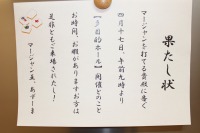 果たし状
マージャンを打てる貴殿に告ぐ
四月十七日、午前九時より
【多目的ホール】開催とのこと
お時間、お暇がありますお方は
是非ともご来場されたし！
マージャン友、あずーま